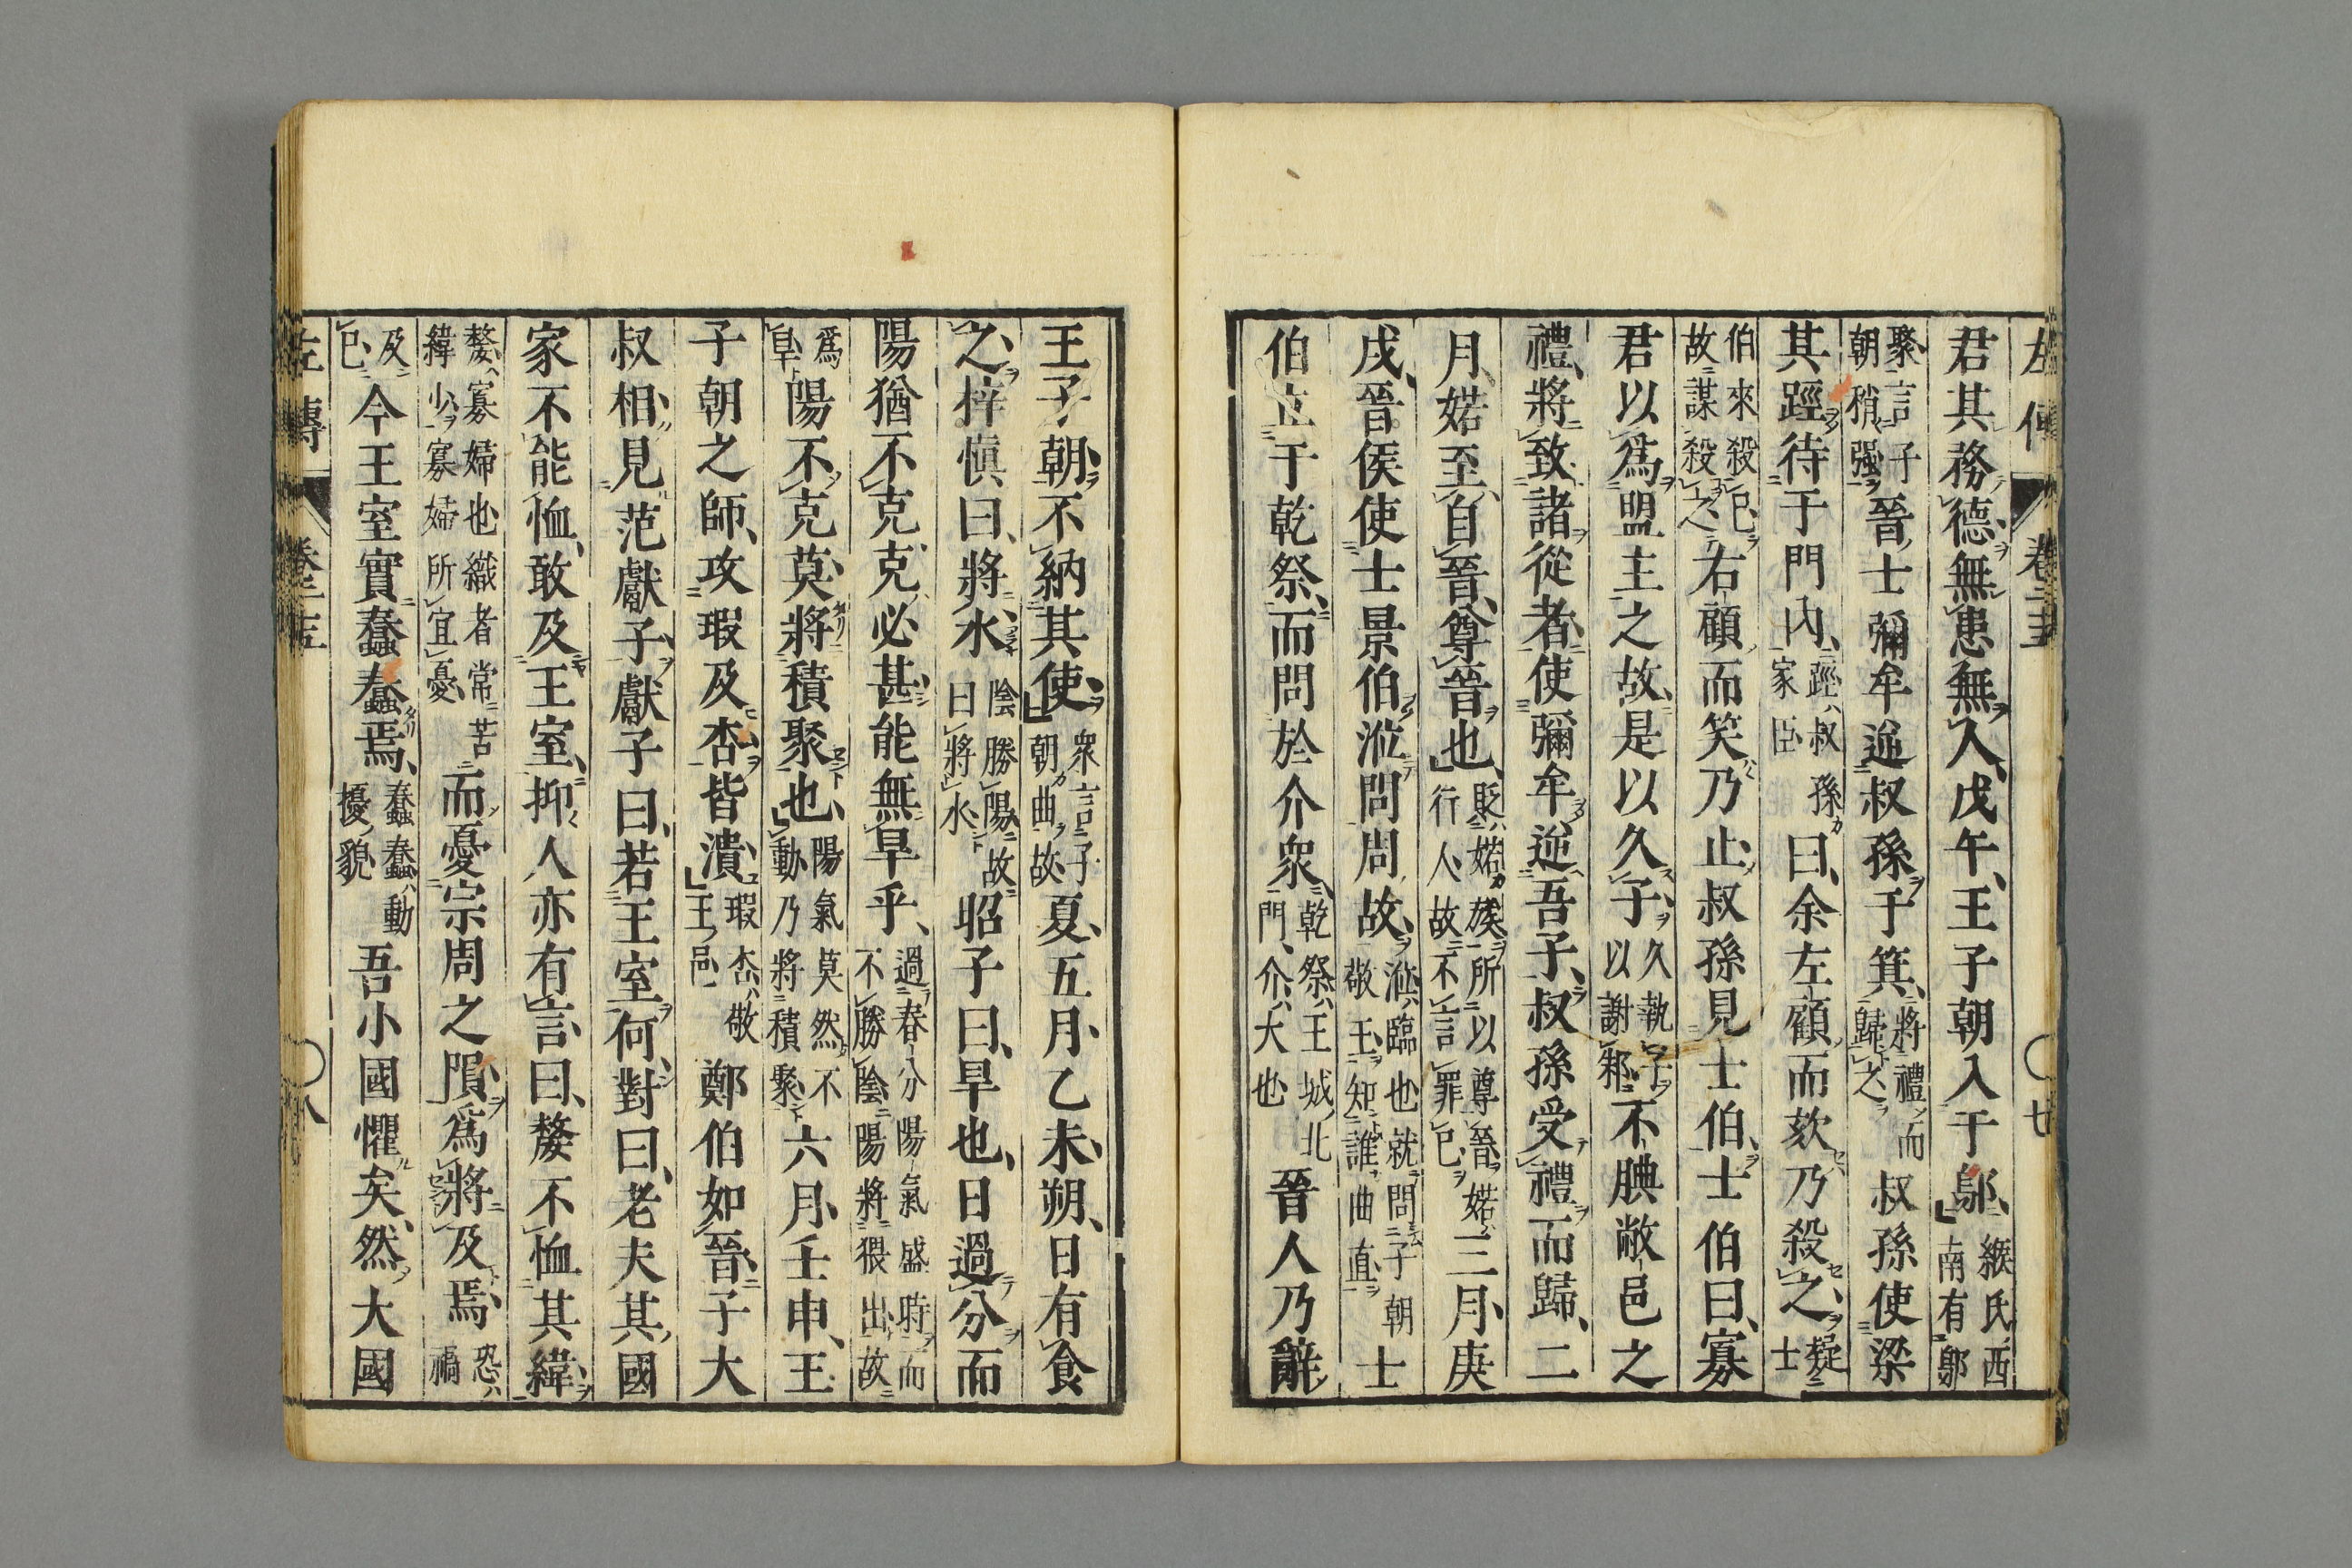 左傳 卷二十五 〇 廿
君其務德無患無入戊午王子朝入于鄔緱氏西南有鄔
聚言子朝稍強晉士彌牟逆叔孫于箕將禮而歸之叔孫使梁
其踁待于門內踁叔孫家臣曰余左顧而欬乃殺之疑士
伯來殺已故謀殺之右顧而笑乃止叔孫見士伯士伯曰寡
君以爲盟主之故是以久子久執子以謝邾不腆敝邑之
禮將致諸從者使彌牟逆吾子叔孫受禮而歸二
月婼至自晉尊晉也貶婼族所以尊晉婼行人故不言罪已三月庚
戌晉侯使士景伯涖問周故涖臨也就問子朝敬王知誰曲直士
伯立于乾祭而問於介衆乾祭王城北門介大也晉人乃辭
王子朝不納其使衆言子朝曲故夏五月乙未朔日有食
之梓愼曰將水陰勝陽故曰將水昭子曰旱也日過分而
陽猶不克克必甚能無旱乎過春分陽氣盛時而不勝陰陽將猥出故
爲旱陽不克莫將積聚也陽氣莫然不動乃將積聚六月壬申王
子朝之師攻瑕及杏皆潰瑕杏敬王邑鄭伯如晉子大
叔相見范獻子獻子曰若王室何對曰老夫其國
家不能恤敢及王室抑人亦有言曰嫠不恤其緯
嫠寡婦也織者常苦緯少寡婦所宜憂而憂宗周之隕爲將及焉恐禍
及已今王室實蠢蠢焉蠢蠢動擾貌吾小國懼矣然大國
左傳 卷二十五 〇 八